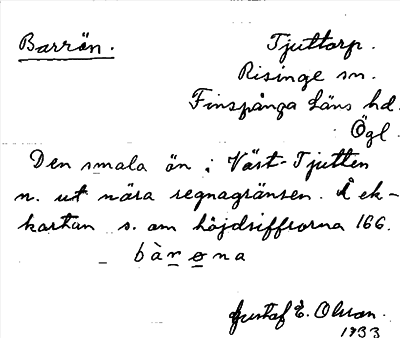 Barrön.
Tjuttorp.
Risinge sn.
Finspånga läns hd.
Ögl.
Den smala ön i Väst-Tjutten
n. ut nära regnagränsen. Å ek-
kartan s. om höjdsiffrorna 166.
bàrona
Gustaf E. Olsson.
1933